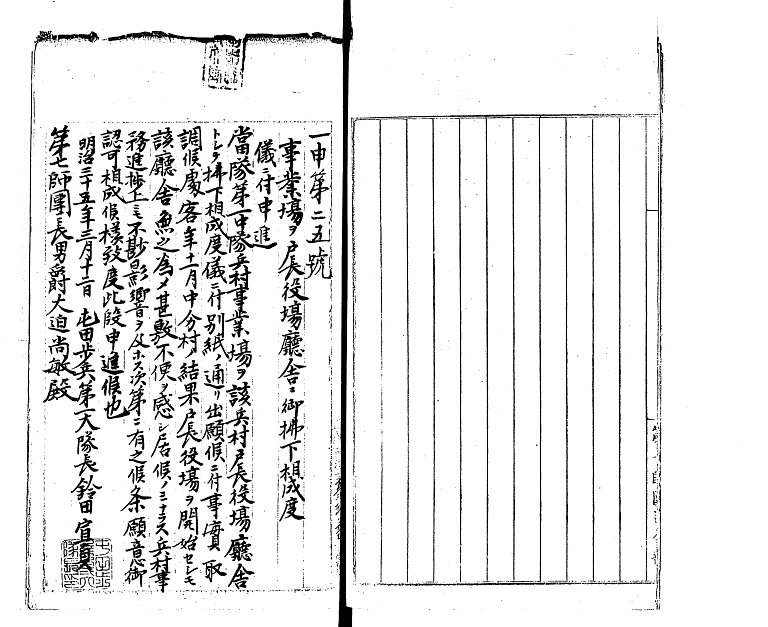 一申第二五號
事業場ヲ戸長役場廳舎ニ御拂下相成度
儀ニ付申進
當隊第一中隊兵村事業場ヲ該兵村戸長役場廳舎
トシテ拂下相成度儀ニ付別紙ノ通リ出願候ニ付事實取
調候處客年十一月中分村ノ結果戸長役場ヲ開始セシモ
該廳舎無之為メ甚敷不便ヲ感シ居候ノミナラス兵村事
務進捗上ニモ不尠影響ヲ及ホス次第ニ有之候条願意御
認可相成候様致度此段申進候也
明治三十五年三月十二日 屯田歩兵第一大隊長鈴田宜貞
第七師團長男爵大迫尚敏殿